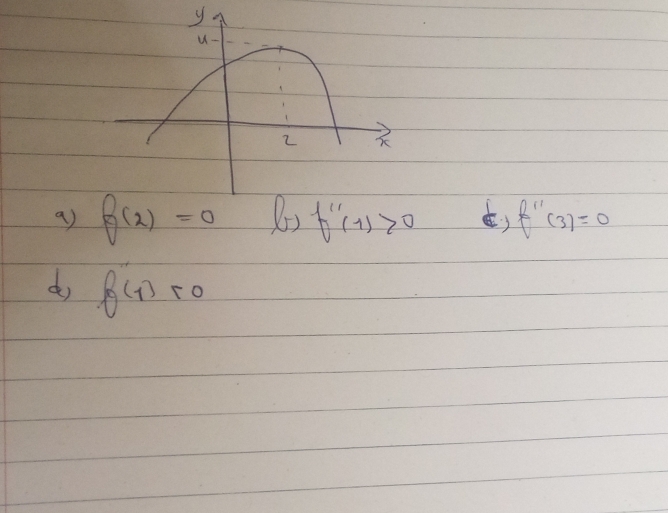 y
4
2
x
a) f(2) = 0 b) f''(1) > 0 c) f''(3) = 0
d) f''(1) < 0